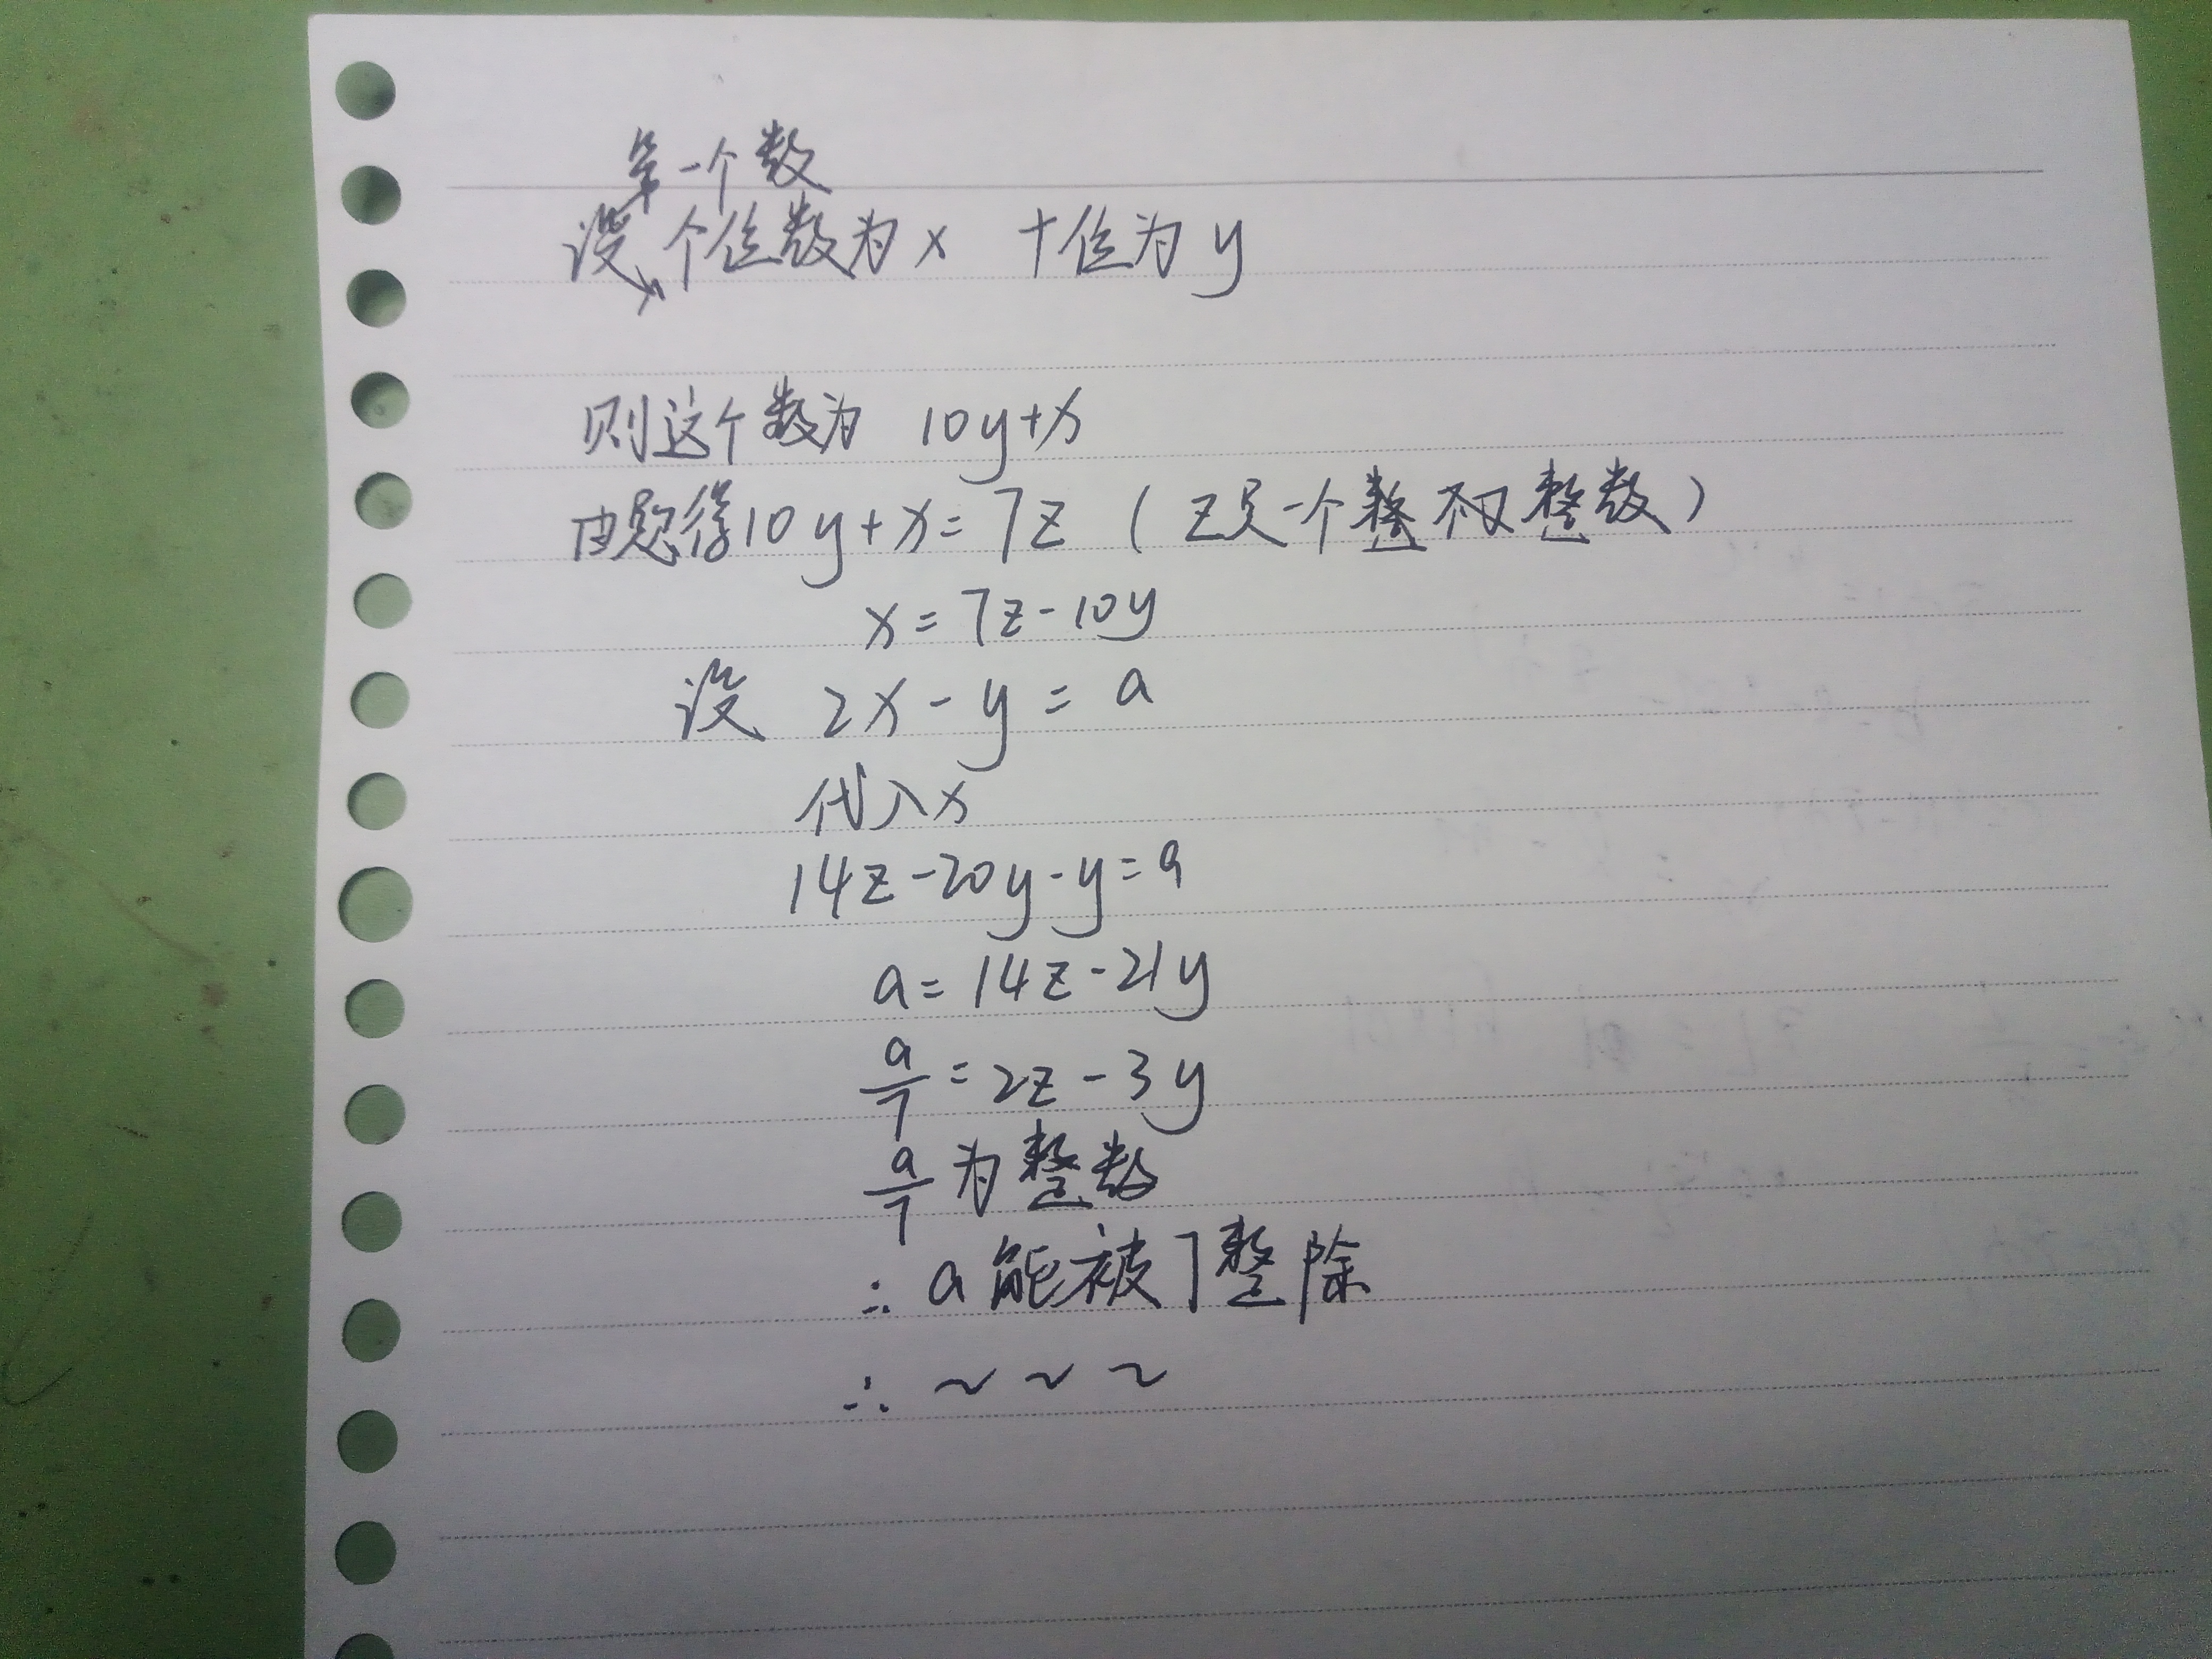 第一个数
设个位数为x 十位为y
则这个数为 10y+x
由题得10y+x=7z (z是一个整 整数)
x=7z-10y
设 2x-y=a
代入x
14z-20y-y=a
a=14z-21y
a/7=2z-3y
a/7为整数
∴a能被7整除
∴~~~